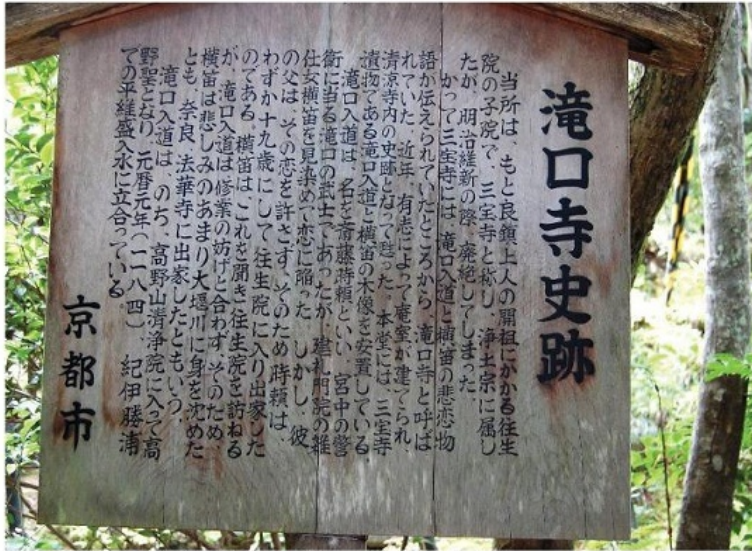 滝口寺史跡
当所は、もと良鎮上人の開祖にかかる往生
院の子院で、三宝寺と称し、浄土宗に属し
たが、明治維新の際、廃絶してしまった。
かって三宝寺には、滝口入道と横笛の悲恋物
語が伝えられていたところから、滝口寺と呼ば
れていた。近年、有志によって庵室が建てられ、
清凉寺内の史跡となって甦った。本堂には、三宝寺
遺物である滝口入道と横笛の木像を安置している。
滝口入道は、名を斎藤時頼といい、宮中の警
衛に当る滝口の武士であったが、建礼門院の雑
仕女横笛を見染めて恋に陥った。しかし、彼
の父は、その恋を許さず、そのため時頼は、
わずか十九歳にして、往生院に入り出家した
のである。横笛は、これを聞き往生院を訪ねる
が、滝口入道は修業の妨げと会わず、そのため、
横笛は悲しみのあまり大堰川に身を沈めた
とも、奈良、法華寺に出家したともいう。
滝口入道は、のち、高野山清浄院に入って高
野聖となり、元暦元年(一一八四)、紀伊勝浦
での平維盛入水に立合っている。
京都市